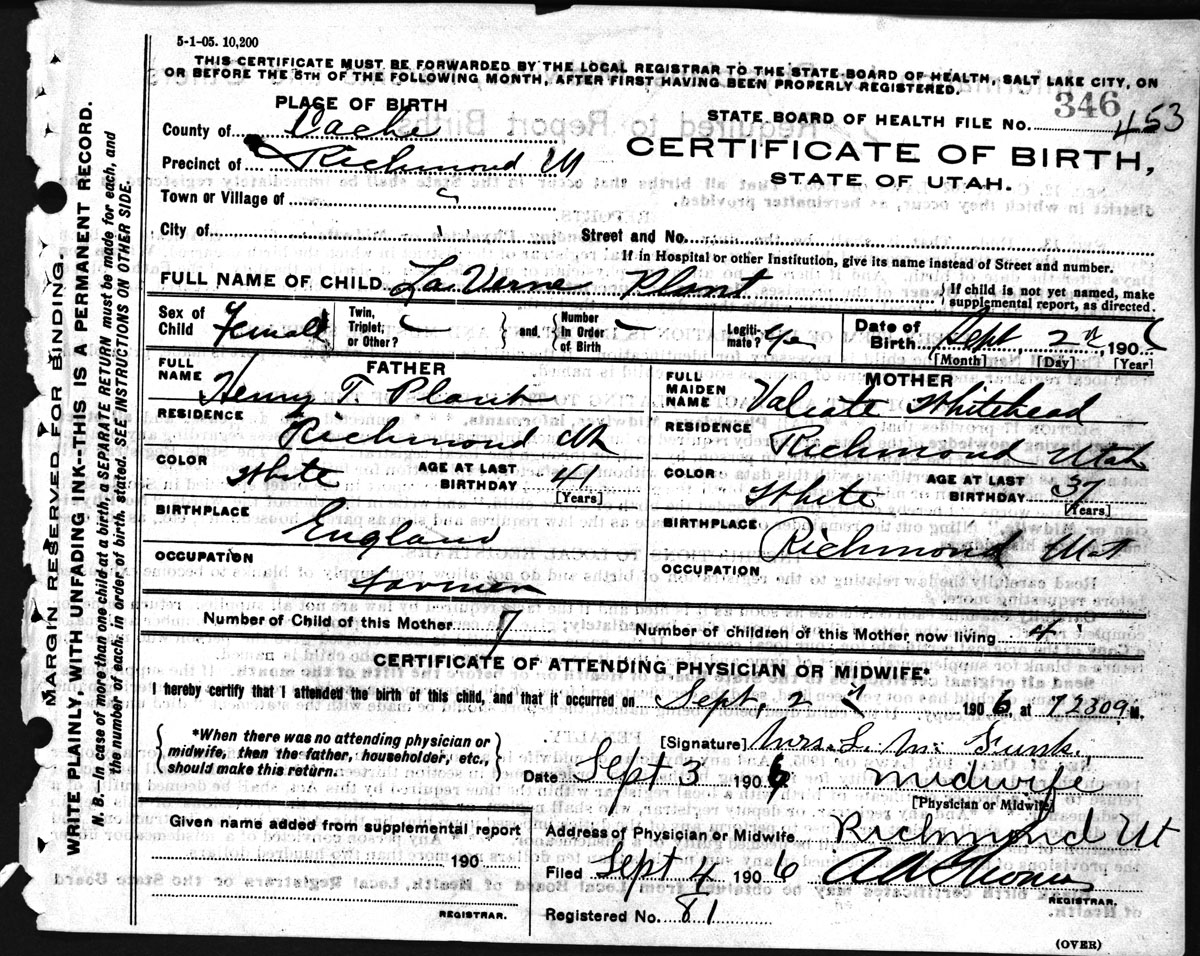 5-1-05. 10,200
THIS CERTIFICATE MUST BE FORWARDED BY THE LOCAL REGISTRAR TO THE STATE BOARD OF HEALTH, SALT LAKE CITY, ON
OR BEFORE THE 5TH OF THE FOLLOWING MONTH, AFTER FIRST HAVING BEEN PROPERLY REGISTERED.
PLACE OF BIRTH
346
STATE BOARD OF HEALTH FILE No. 453
County of Cache
CERTIFICATE OF BIRTH,
Precinct of Richmond Ut
STATE OF UTAH.
Town or Village of
City of Street and No.
If in Hospital or other Institution, give its name instead of Street and number.
FULL NAME OF CHILD La Verne Plant
If child is not yet named, make
supplemental report, as directed.
Sex of Child Female
Twin, Triplet, or Other?
and
Number In Order of Birth
Legiti- mate?
Date of Birth Sept 2nd, 190
[Month] [Day] [Year]
FATHER
FULL NAME Henry T. Plant
RESIDENCE
Richmond Ut
COLOR White AGE AT LAST BIRTHDAY 41
[Years]
BIRTHPLACE
England
OCCUPATION
Farmer
MOTHER
FULL MAIDEN NAME Whitehead
RESIDENCE
Richmond Utah
COLOR White AGE AT LAST BIRTHDAY 37
[Years]
BIRTHPLACE
Richmond Utah
OCCUPATION
Number of Child of this Mother 7 Number of children of this Mother now living 4
CERTIFICATE OF ATTENDING PHYSICIAN OR MIDWIFE*
I hereby certify that I attended the birth of this child, and that it occurred on Sept, 2nd 1906 at M.
*When there was no attending physician or
midwife, then the father, householder, etc.,
should make this return.
[Signature] Mrs. L M. Funk.
Date Sept 3 1906 midwife
[Physician or Midwife]
Given name added from supplemental report
190
REGISTRAR.
Address of Physician or Midwife Richmond Ut
Filed Sept 4 1906
REGISTRAR.
Registered No. 81
(OVER)
MARGIN RESERVED FOR BINDING.
WRITE PLAINLY, WITH UNFADING INK--THIS IS A PERMANENT RECORD.
N. B.—In case of more than one child at a birth, a SEPARATE RETURN must be made for each, and
the number of each, in order of birth, stated. SEE INSTRUCTIONS ON OTHER SIDE.